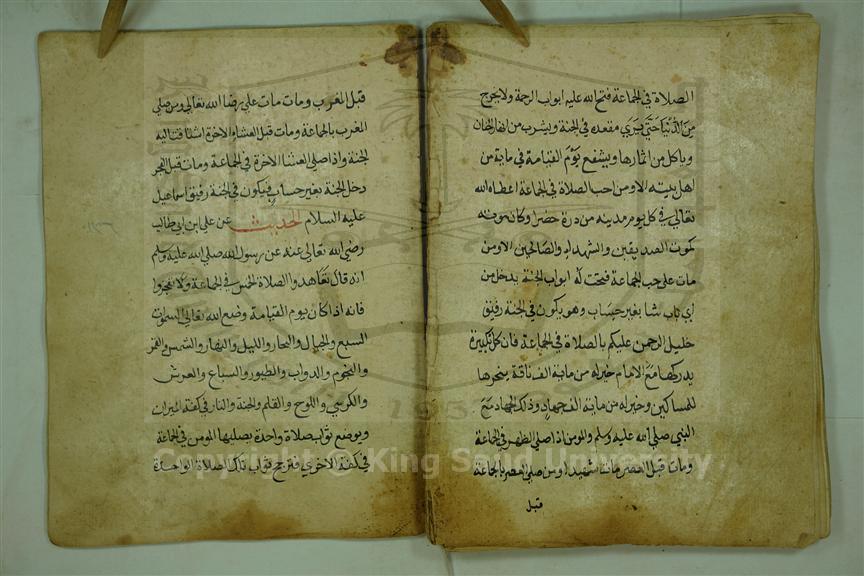 الصلاة في الجماعة فتح الله عليه ابواب الرحمة ولا يخرج
من الدنيا حتى يرى مقعده في الجنة ويشرب من انهار الجنان
وياكل من اثمارها ويشفع يوم القيامة في ماية من
اهل بيته الا ومن احب الصلاة في الجماعة اعطاه الله
تعالى في كل يوم مدينه من درة خضرا وكان موته
كموت الصديقين والشهداء والصالحين الا ومن
مات على حب الجماعة فتحت له ابواب الجنة يدخل من
اي باب شا بغير حساب وهو يكون في الجنة رفيق
خليل الرحمن عليكم بالصلاة في الجماعة فان كل تكبيرة
يدركها مع الامام خير له من ماية الف ناقة ينحرها
للمساكين وخير له من ماية الف جهاد وذلك الجهاد مع
النبي صلى الله عليه وسلم والمومن اذا صلى الظهر في الجماعة
ومات قبل العصر مات شهيدا ومن صلى العصر بالجماعة
قبل
قبل المغرب ومات مات على رضا الله تعالى ومن صلى
المغرب بالجماعة ومات قبل العشاء الاخرة اشتاقت اليه
الجنة واذا صلى العشا الاخرة في الجماعة ومات قبل الفجر
دخل الجنة بغير حساب فيكون في الجنة رفيق اسماعيل
عليه السلام الحديث عن علي ابن ابي طالب
رضي الله تعالى عنه عن رسول الله صلى الله عليه وسلم
انه قال تعاهدوا الصلاة الخمس في الجماعة ولا تعجزوا
فانه اذا كان يوم القيامة وضع الله تعالى السموات
السبع والجبال والبحار والليل والنهار والشمس والقمر
والنجوم والدواب والطيور والسباع والعرش
والكرسي واللوح والقلم والجنة والنار في كفة الميزان
ويوضع ثواب صلاة واحدة يصليها المومن في الجماعة
في كفة الاخرى فترجح ثواب تلك الصلاة الواحدة
Copyright © King Saud University